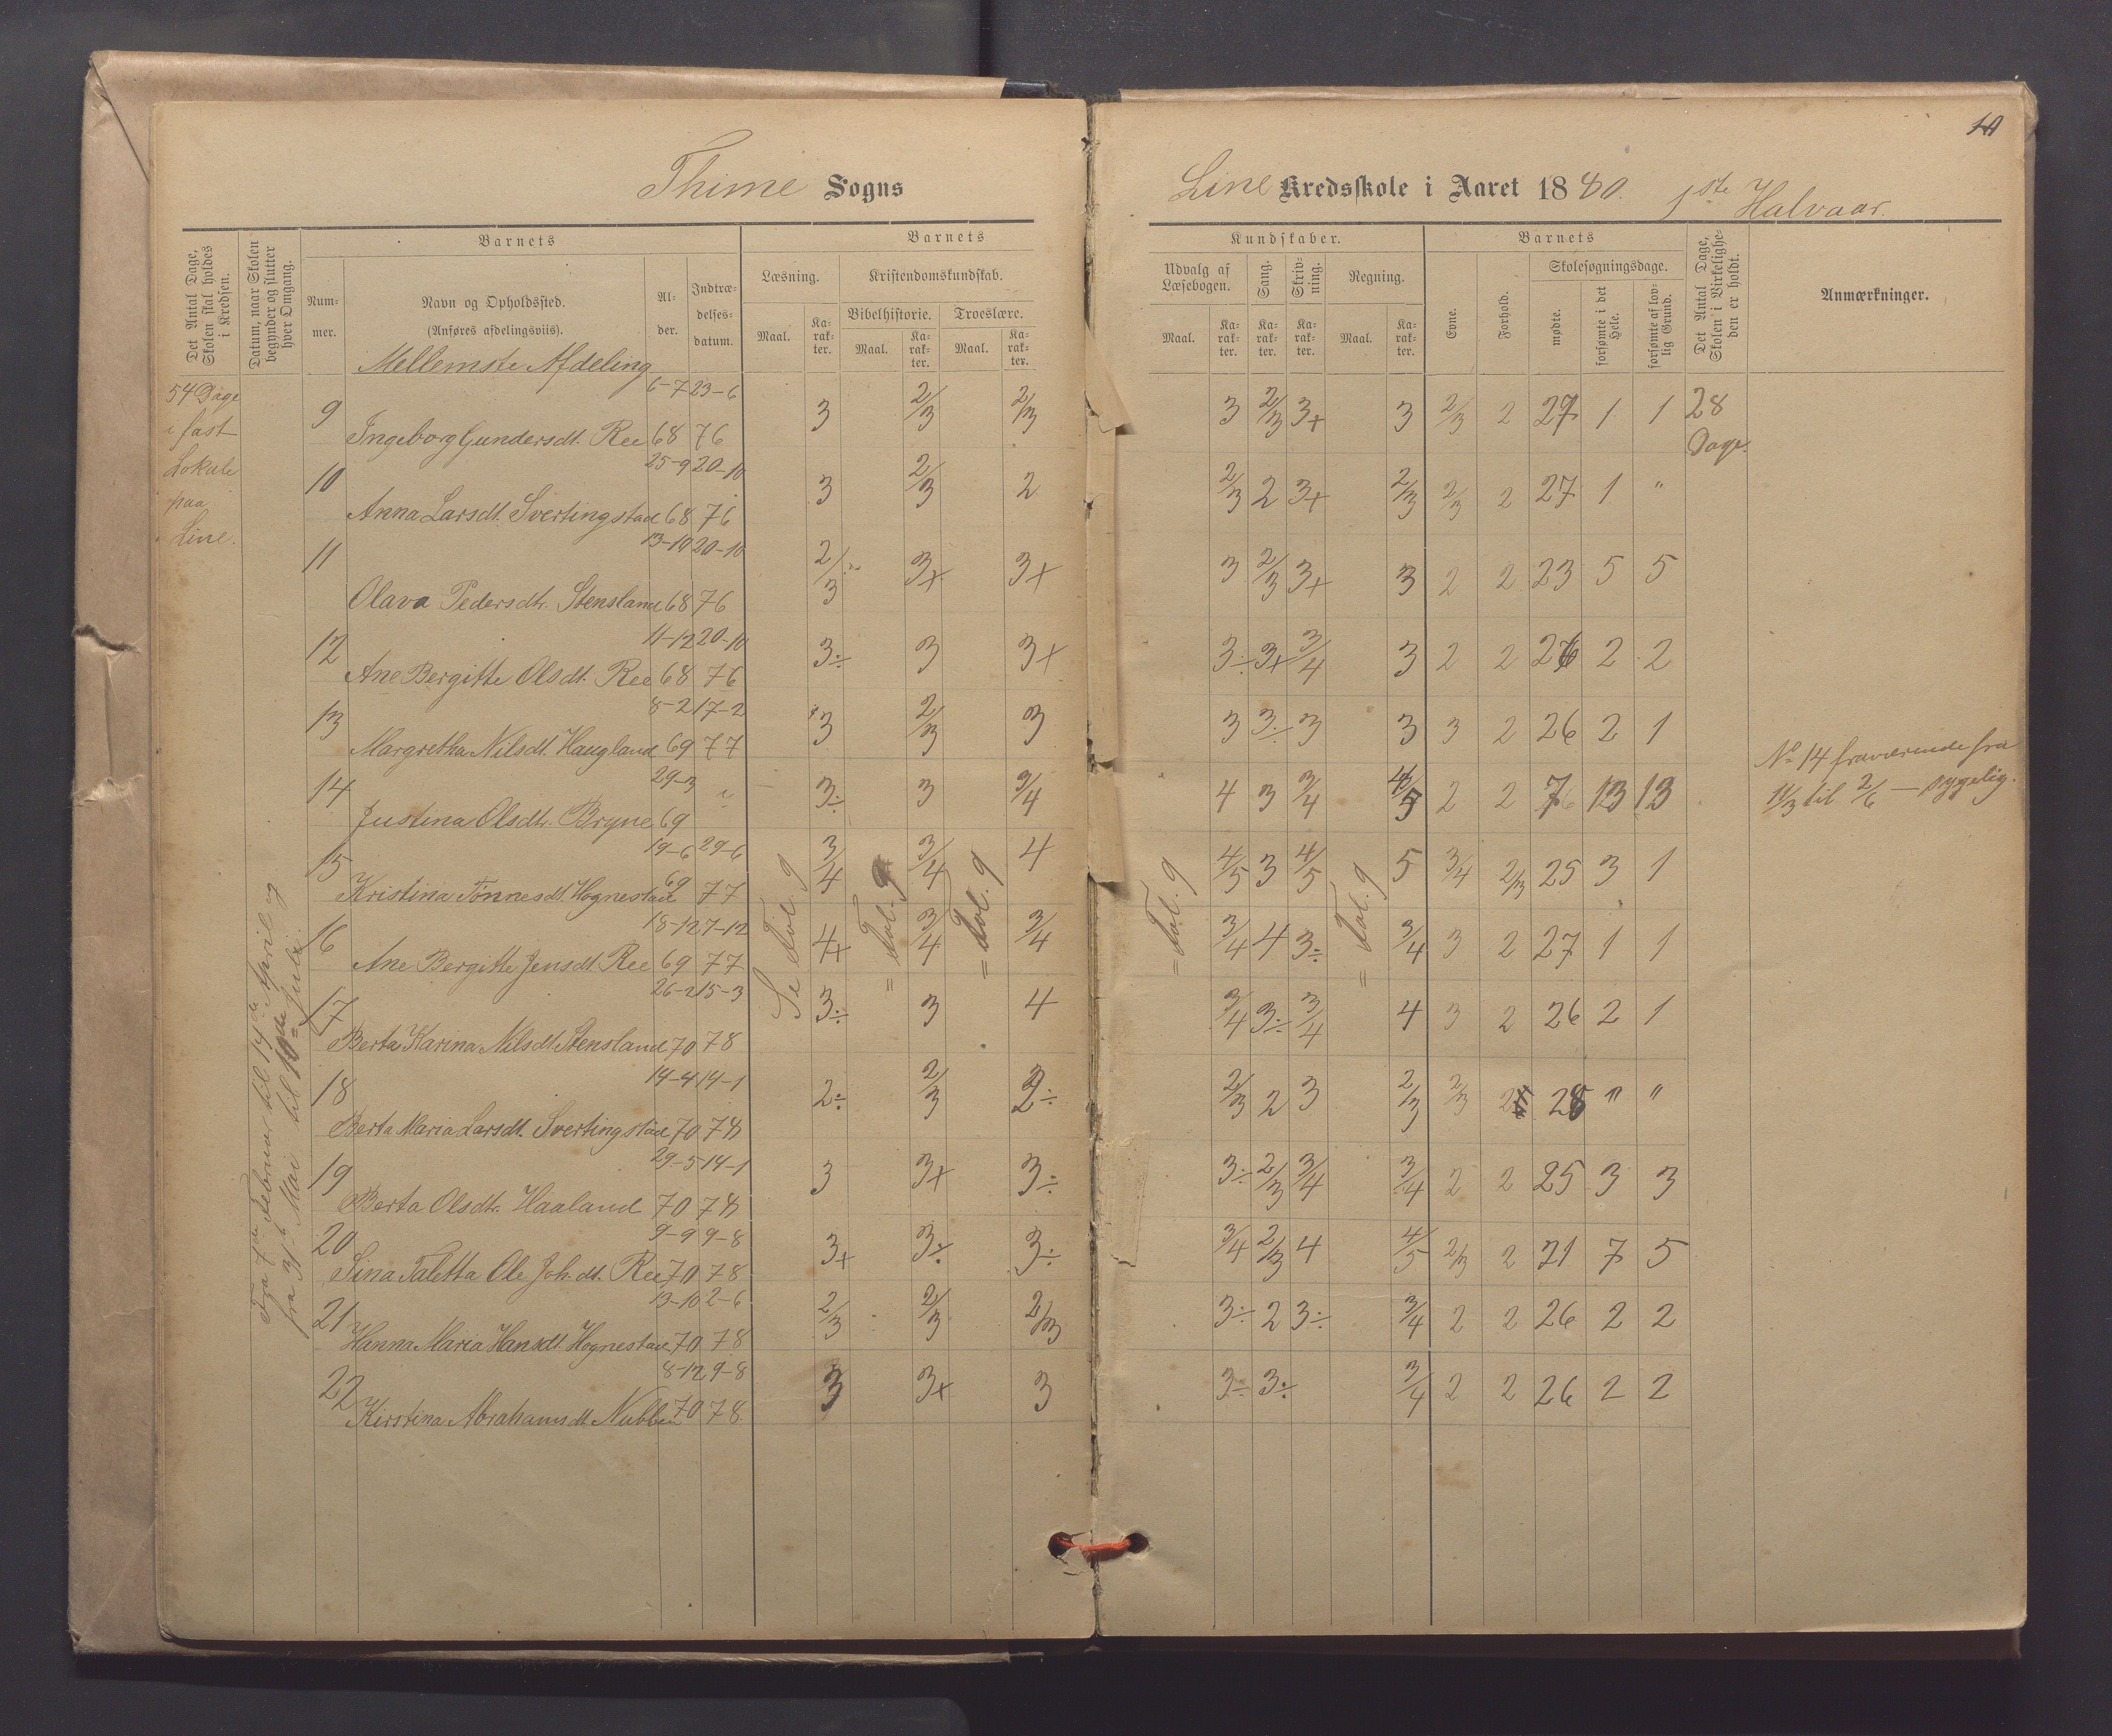 10
Thime Sogns
Line Kredsskole i Aaret 1880. 1ste Halvaar.
Det Antal Dage, Skolen skal holdes i Kredsen.
Datum, naar Skolen begynder og slutter hver Omgang.
Barnets
Num-mer.
Navn og Opholdssted.
(Anføres afdelingsviis).
Al-der.
Indtræ-delses-datum.
Barnets
Læsning.
Maal.
Ka-rak-ter.
Kristendomskundskab.
Bibelhistorie.
Maal.
Ka-rak-ter.
Troeslære.
Maal.
Ka-rak-ter.
Kundskaber.
Udvalg af Læsebogen.
Maal.
Ka-rak-ter.
Sang.
Ka-rak-ter.
Skriv-ning.
Ka-rak-ter.
Regning.
Maal.
Ka-rak-ter.
Barnets
Evne.
Forhold.
Skolesøgningsdage.
mødte.
forsømte i det Hele.
forsømte af lov-lig Grund.
Det Antal Dage, Skolen i Virkelighe-den er holdt.
Anmærkninger.
Mellemste Afdeling
54 Dage
i fast
Lokale
paa
Line.
Fra 7de Februar til 14de April og
fra 31te Mai til 10de Juli.
9 Ingeborg Gundersdt. Ree 6-7 68 23-6 76 3 2/3 2/3 3 2/3 3+ 3 2/3 2 27 1 1 28 Dage.
10 Anna Larsdt. Svertingstad 25-9 68 20-10 76 3 2/3 2 2/3 2 3+ 2/3 2/3 2 27 1 "
11 Olava Pedersdtr. Stensland 13-10 68 20-10 76 2/3 3+ 3+ 3 2/3 3+ 3 2 2 23 5 5
12 Ane Bergitte Olsdt. Ree 11-12 68 20-10 76 3÷ 3 3+ 3÷ 3+ 3/4 3 2 2 26 2 2
13 Margretha Nilsdt. Haugland 8-2 69 17-2 77 3 2/3 3 3 3÷ 3 3 3 2 26 2 1
14 Justina Olsdtr. Bryne 29-3 69 " 3÷ 3 3/4 4 3 3/4 4/5 2 2 7 13 13
No 14 fraværende fra
11/3 til 2/6 — sygelig.
15 Kristina Tønnesdt. Hognestad 19-6 69 29-6 77 3/4 3/4 4 4/5 3 4/5 5 3/4 2/3 25 3 1
16 Ane Bergitte Jensdt. Ree 18-12 69 7-12 77 4+ 3/4 3/4 3/4 4 3÷ 3/4 3 2 27 1 1
17 Berta Karina Nilsdt. Stensland 26-2 70 15-3 78 3÷ 3 4 3/4 3÷ 3/4 4 3 2 26 2 1
18 Berta Maria Larsdt. Svertingstad 14-4 70 14-1 78 2÷ 2/3 2÷ 2/3 2 3 2/3 2/3 2 28 " "
19 Berta Olsdtr. Haaland 29-5 70 14-1 78 3 3+ 3÷ 3÷ 2/3 3/4 3/4 2 2 25 3 3
20 Sina Taletta Ole Joh.dt. Ree 9-9 70 9-8 78 3+ 3÷ 3÷ 3/4 2/3 4 4/5 2/3 2 21 7 5
21 Hanna Maria Hansdt. Hognestad 13-10 70 2-6 78 2/3 2/3 2/3 3÷ 2 3÷ 3/4 2 2 26 2 2
22 Kirstina Abrahamsdt. Nubben 8-12 70 9-8 78 3 3+ 3 3÷ 3÷ 3/4 2 2 26 2 2
Se Fol. 9
= Fol. 9
= Fol. 9
= Fol. 9
= Fol. 9